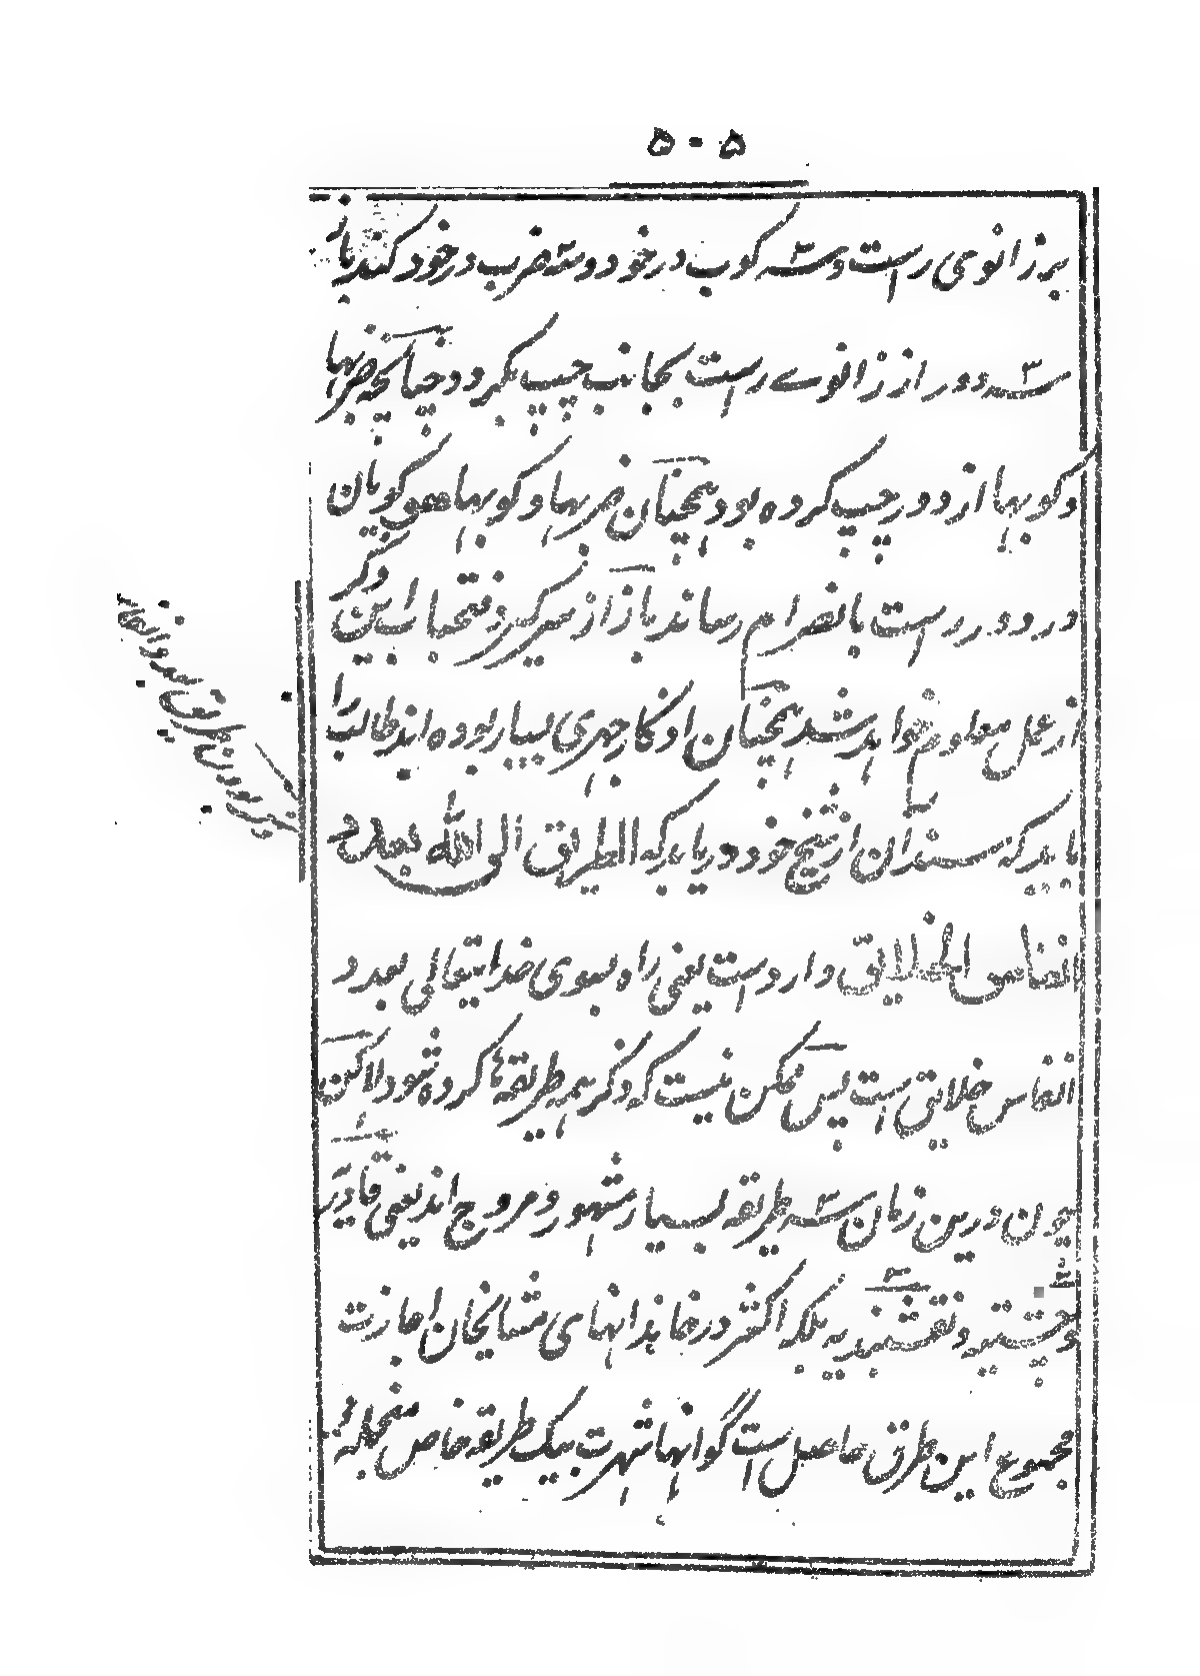 ۵۰۵
بر زانوی راست و سه کوب در خود و سه ضرب در خود کند باز
سه دور از زانوے راست بجانب چپ بگردد چنانچه ضربها
و کوبها از دور چپ کرده بود همچنان ضربها و کوبها هو گویان
در دور راست بانصرام رساند باز از سر گیرد فتحباب این ذکر
از عمل معلوم خواهد شد همچنان اذکار جهری بسیار بوده اند طالب را
باید که سند آن از شیخ خود دریابد که الطریق الی الله بعدد
انفاس الخلایق وارد است یعنی راه بسوی خدایتعالی بعدد
انفاس خلایق است پس ممکن نیست که ذکر همه طریقه ها کرده شود لاکن
چون درین زمان سه طریقه بسیار مشهور و مروج اند یعنی قادریه
و چشتیه و نقشبندیه بلکه اکثر در خاندانهای مشایخان اجازت
مجموع این طرق حاصل است گو انها شهرت بیک طریقه خاص منجمله
ذکر بودن طریق بعدد انفاس